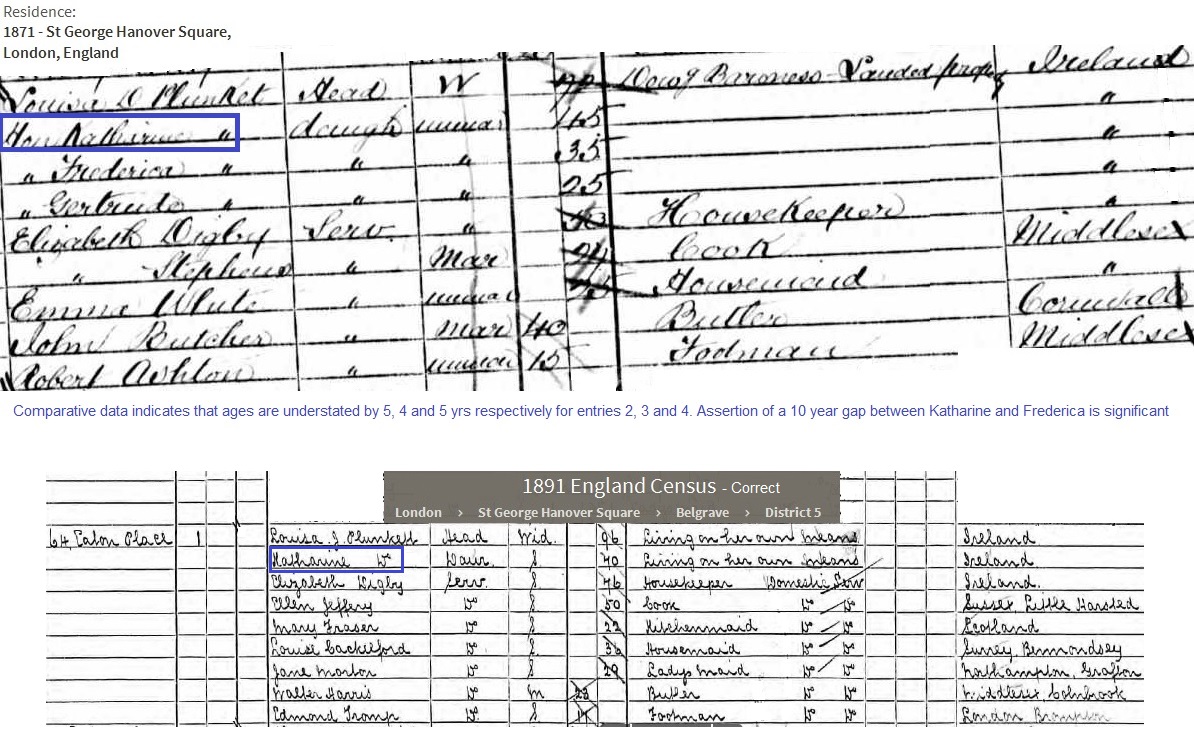 Residence:
1871 - St George Hanover Square,
London, England
Louisa D Plunket Head W Dowg Baroness - Landed propy Ireland
Hon Katherine " daugh unmar 45 "
" Frederica " " " 35 "
" Gertrude " " " 25 "
Elizabeth Digby Serv. " Housekeeper "
" Stephens " Mar Cook Middlesex
Emma White " unmar Housemaid "
John Butcher " Mar 40 Butler Cornwall
Robert Ashton " unmar 15 Footman Middlesex
Comparative data indicates that ages are understated by 5, 4 and 5 yrs respectively for entries 2, 3 and 4. Assertion of a 10 year gap between Katharine and Frederica is significant
1891 England Census - Correct
London > St George Hanover Square > Belgrave > District 5
64 Eaton Place 1 Louisa J Plunkett Head Wid. 96 Living on her own means Ireland
Katharine Do Daur. S 70 Living on her own means Ireland
Elizabeth Digby Serv. S 76 Housekeeper Domestic Serv Ireland.
Ellen Jeffery Do S 50 Cook Do Do Sussex Little Horsted
Mary Fraser Do S 22 Kitchenmaid Do Do Scotland
Louise Do S Housemaid Do Do Surrey, Bermondsey
Jane Morton Do S 29 Ladys maid Do Do Northampton, Grafton
Walter Harris Do M 28 Butler Do Do Middlesex Colnbrook
Edmond Tromp Do. S Footman Do Do London Brompton